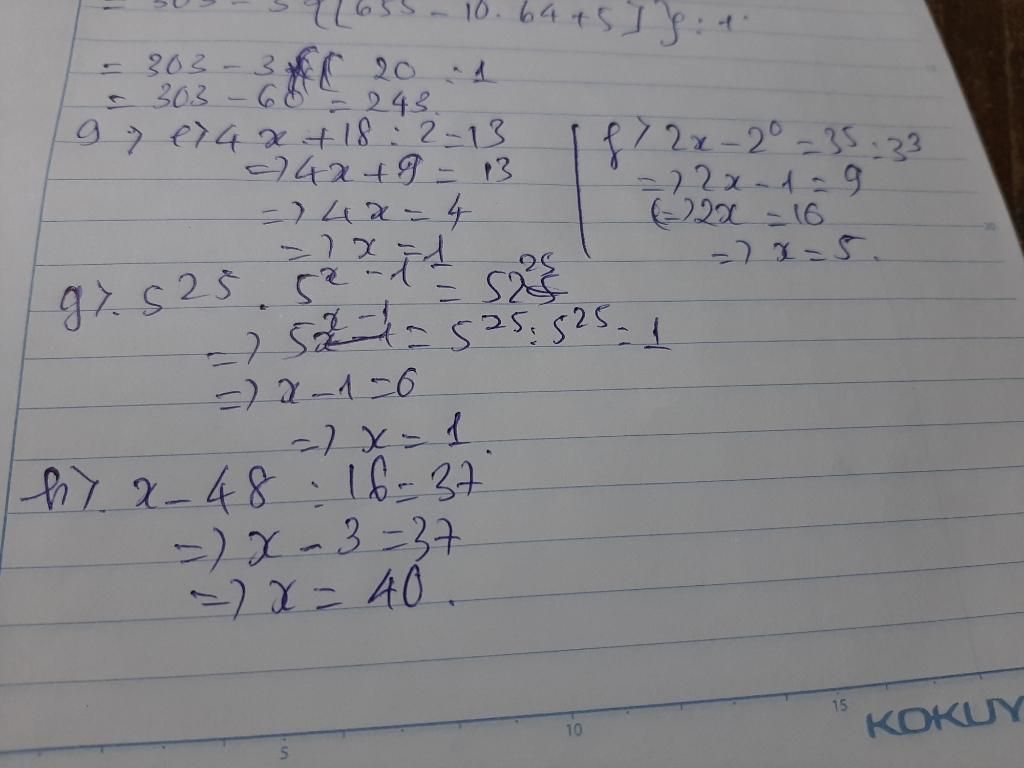 = 303 - 3 {[655 - 10.64 + 5]} : 1.
= 303 - 3 20 : 1
= 303 - 60 = 243.
9 > e> 4x + 18 : 2 = 13
=> 4x + 9 = 13
=> 4x = 4
=> x = 1
f> 2x - 2⁰ = 3⁵ : 3³
=> 2x - 1 = 9
(=> 2x = 16
=> x = 5.
g>. 5²⁵ . 5ˣ⁻¹ = 5²⁵
=> 5ˣ⁻¹ = 5²⁵ : 5²⁵ = 1
=> x - 1 = 6
=> x = 1.
h>. x - 48 : 16 = 37
=> x - 3 = 37
=> x = 40.
15
KOKUY
10
5